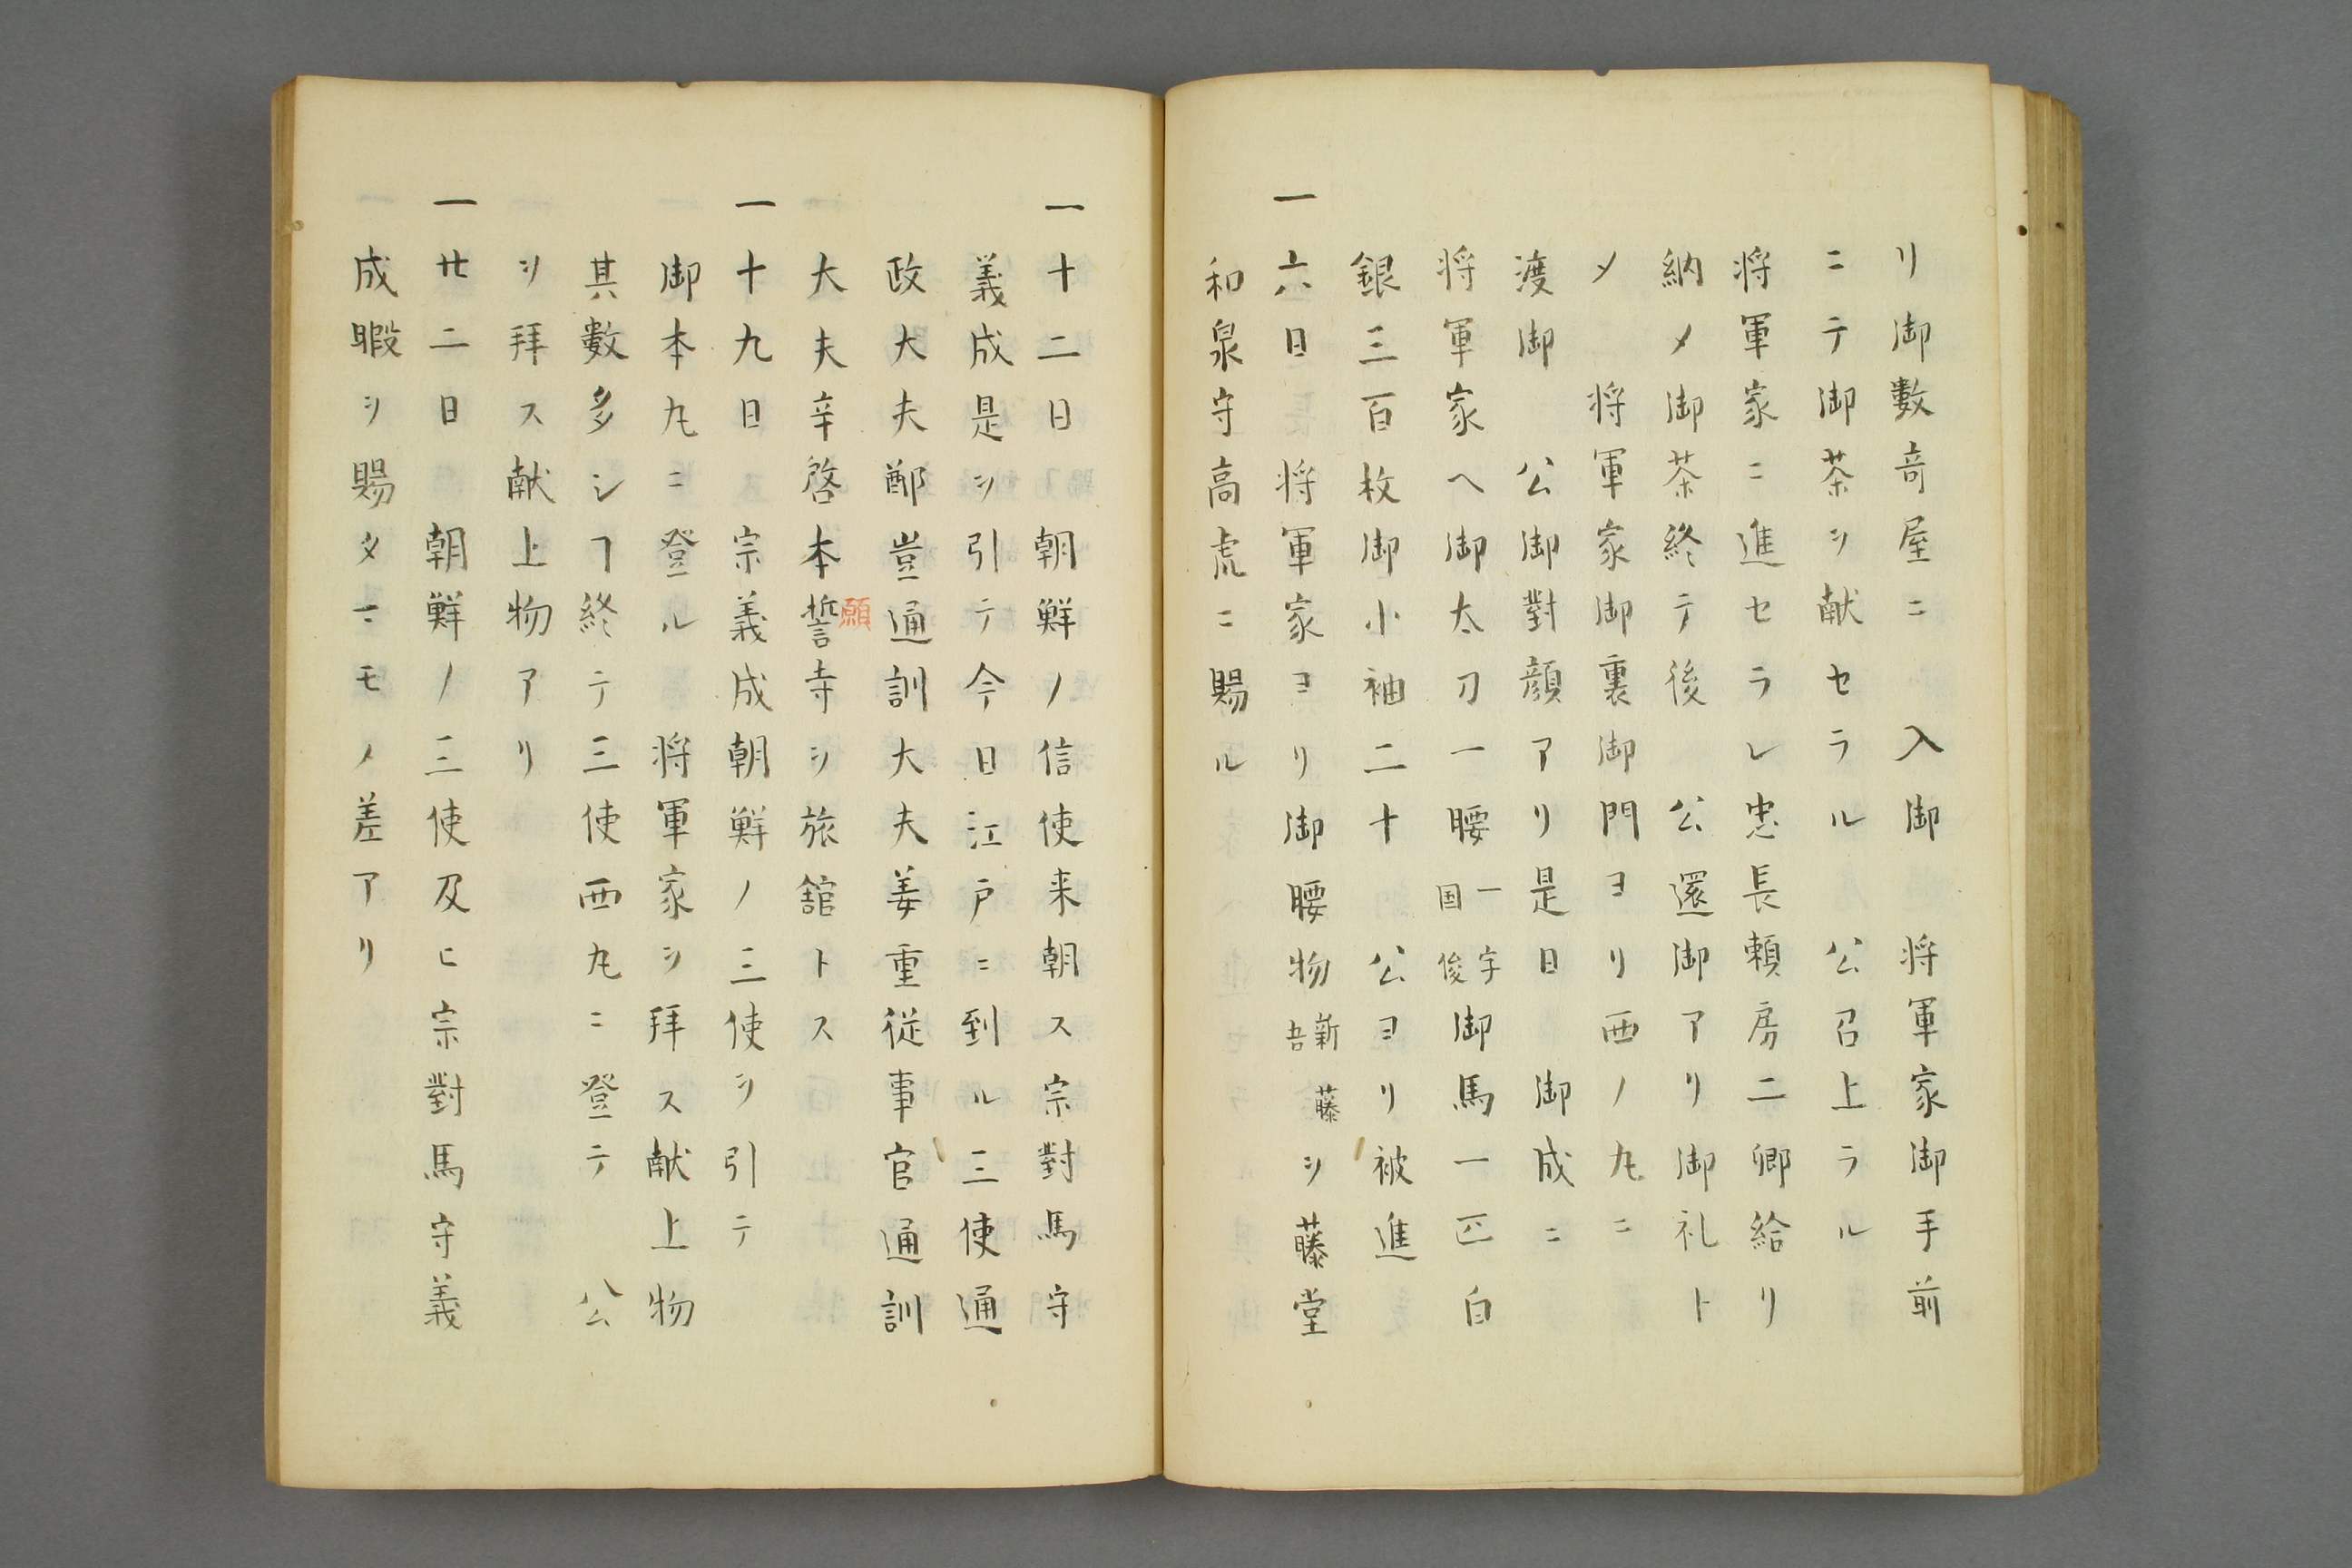 リ御數奇屋ニ　入御　将軍家御手前
ニテ御茶ヲ献セラル　公召上ラル
将軍家ニ進セラレ忠長頼房二卿給リ
納メ御茶終テ後　公還御アリ御礼ト
メ　将軍家御裏御門ヨリ西ノ丸ニ
渡御　公御對顔アリ是日　御成ニ
将軍家ヘ御太刀一腰一字国俊御馬一疋白
銀三百枚御小袖二十　公ヨリ被進
一六日　将軍家ヨリ御腰物新藤吾ヲ藤堂
和泉守高虎ニ賜ル
一十二日　朝鮮ノ信使来朝ス宗對馬守
義成是ヲ引テ今日江戸ニ到ル三使通
政大夫鄭豈通訓大夫姜重従事官通訓
大夫辛啓本誓寺ヲ旅舘トス
願
一十九日　宗義成朝鮮ノ三使ヲ引テ
御本丸ニ登ル　将軍家ヲ拜ス献上物
其數多シヿ終テ三使西丸ニ登テ　公
ヲ拜ス献上物アリ
一廿二日　朝鮮ノ三使及ヒ宗對馬守義
成暇ヲ賜タマモノ差アリ